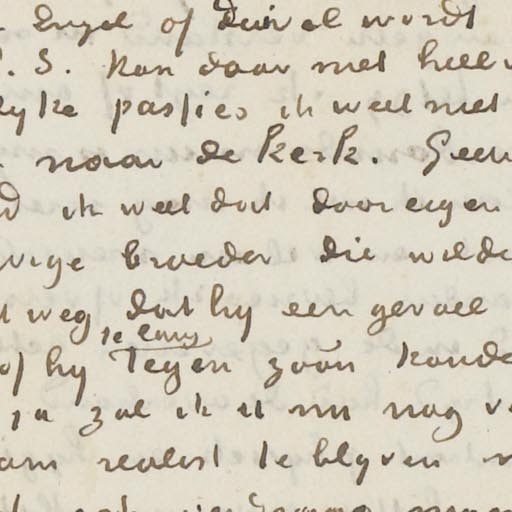 Engel of Duivel wordt
S. Kan daar niet heel
lyke passies ik weet niet
naar de kerk. Geen
ik weet dat door eigen
broeder die wilde
weg dat hy een geval
te lang
of hy Tegen zoo'n koude
ja zal ik u nu nog
realist te blyven